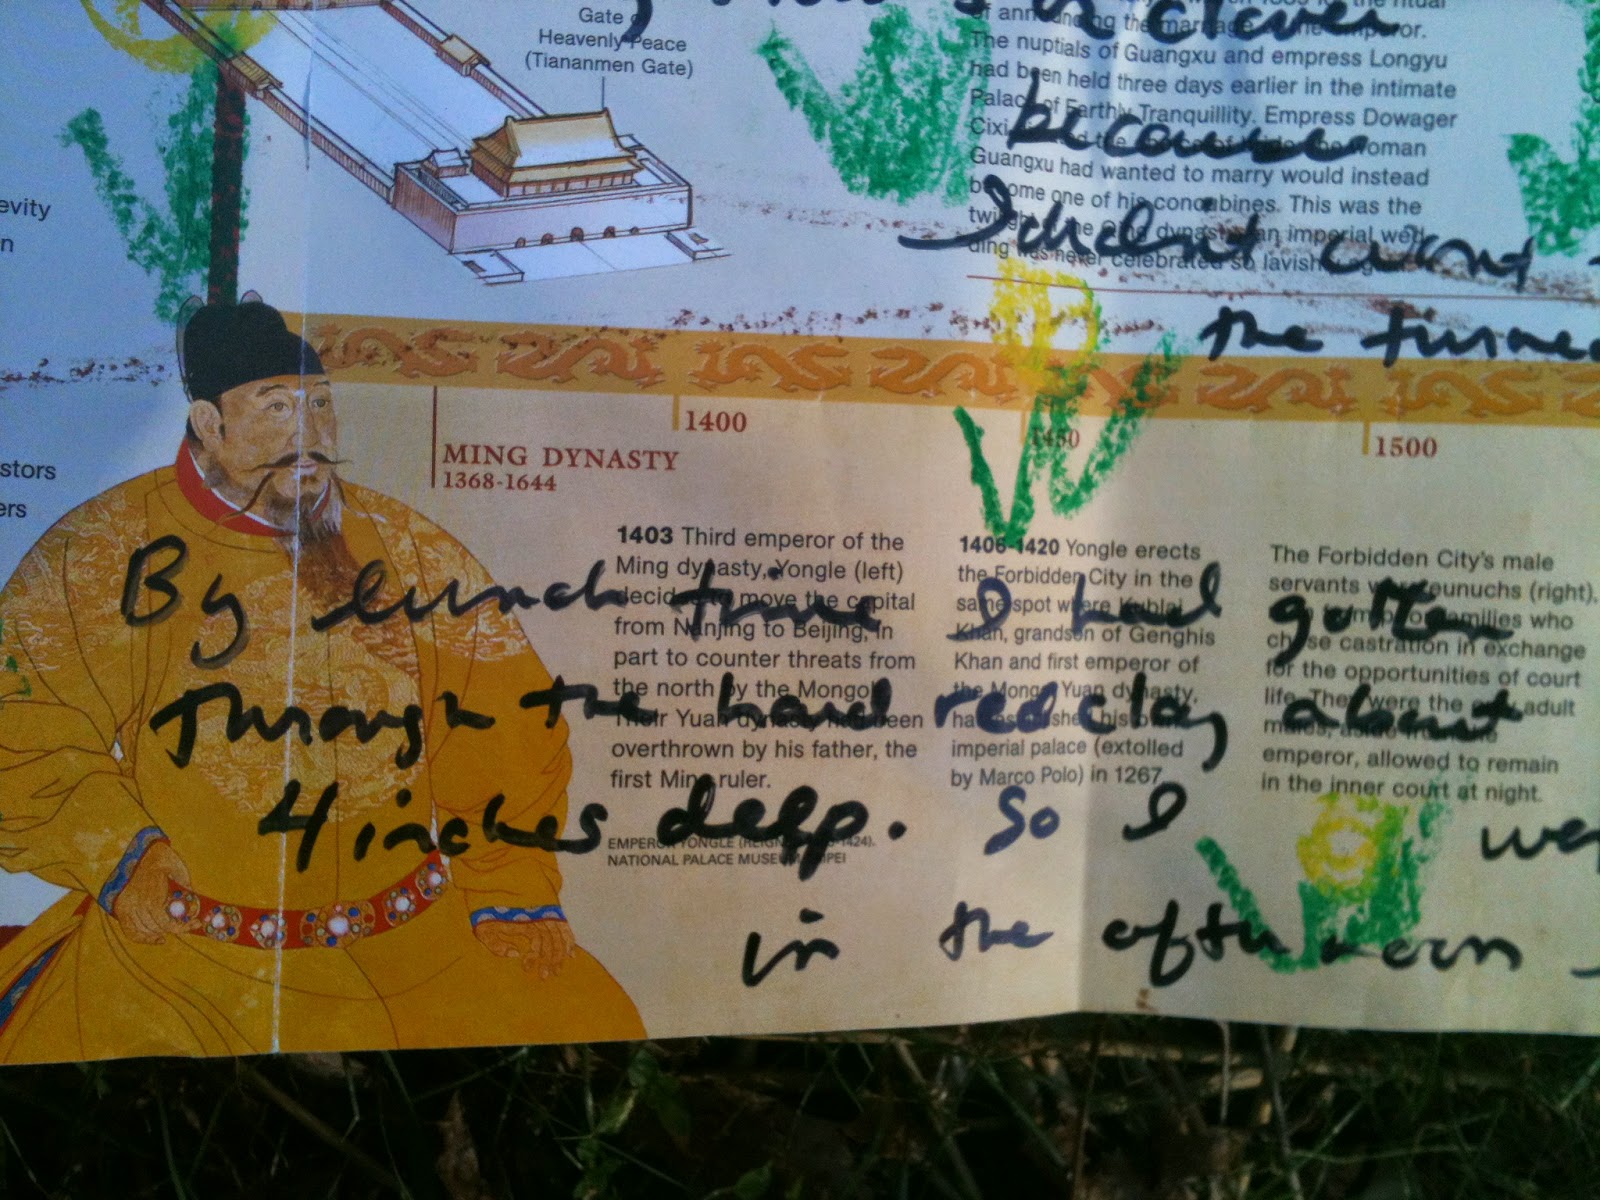 Gate
Heavenly Peace
(Tiananmen Gate)
evity
n
stors
ers
ritual
of announcing the marriage emperor.
The nuptials of Guangxu and empress Longyu
had been held three days earlier in the intimate
Palace of Earthly Tranquillity. Empress Dowager
Cixi the woman
Guangxu had wanted to marry would instead
become one of his concubines. This was the
dynasty an imperial wed-
ding was never celebrated so lavishly
clover
because
I didnt want
the turned
1400
1450
1500
MING DYNASTY
1368-1644
1403 Third emperor of the
Ming dynasty, Yongle (left)
decides to move the capital
from Nanjing to Beijing, in
part to counter threats from
the north by the Mongols.
Their Yuan dynasty had been
overthrown by his father, the
first Ming ruler.
EMPEROR YONGLE 1424).
NATIONAL PALACE MUSEUM, TAIPEI
1406-1420 Yongle erects
the Forbidden City in the
same spot where Kublai
Khan, grandson of Genghis
Khan and first emperor of
the Mongol Yuan dynasty,
had established his own
imperial palace (extolled
by Marco Polo) in 1267.
The Forbidden City's male
servants were eunuchs (right),
families who
chose castration in exchange
for the opportunities of court
life. They were the only adult
males, aside from the
emperor, allowed to remain
in the inner court at night.
By lunch time I had gotten
through the hard red clay about
4 inches deep. So I
in the afternoon